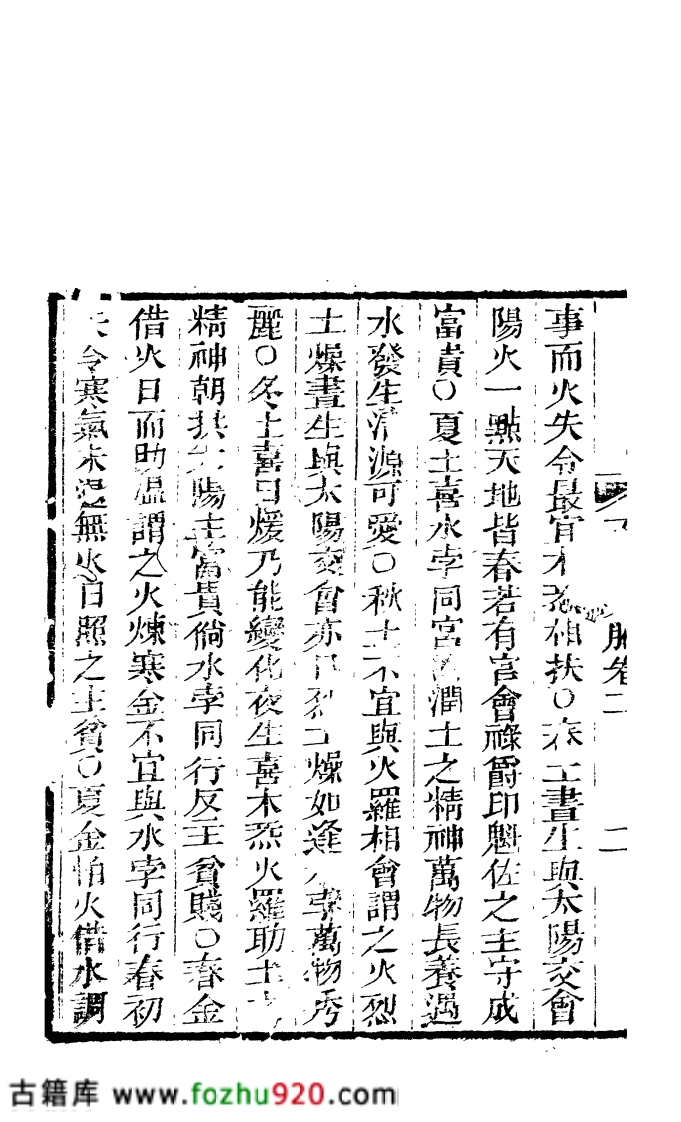 卷二
二
事而火失令最宜木相扶〇春土晝生與太陽交會
陽火一點天地皆春若有官會祿爵印魁佐之主守成
富貴〇夏土喜水孛同宮潤土之精神萬物長養遇
水發生清源可愛〇秋土不宜與火羅相會謂之火烈
土燥晝生與太陽交會亦燥如逢孛萬物秀
麗〇冬土喜日煖乃能變化夜生喜木炁火羅助土
精神朝拱太陽主富貴倘水孛同行反主貧賤〇春金
借火日而助溫謂之火煉寒金不宜與水孛同行春初
令寒氣未退無火日照之主貧〇夏金怕火借水調
古籍库 www.fozhu920.com